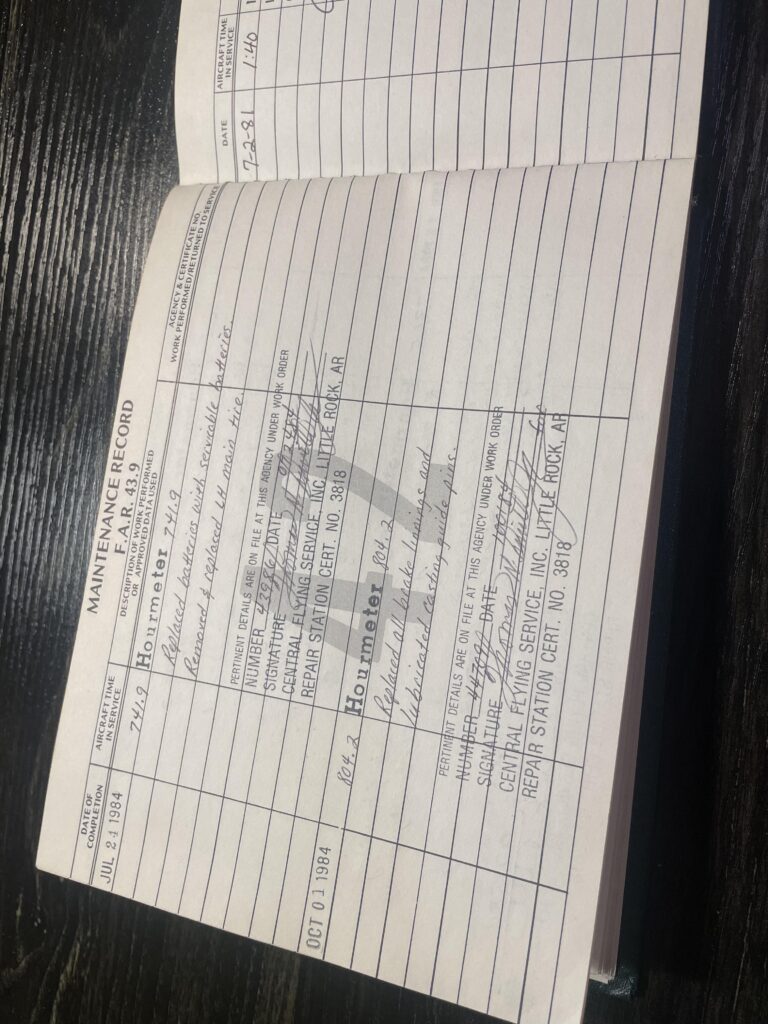 MAINTENANCE RECORD
F.A.R. 43.9
DATE OF COMPLETION
AIRCRAFT TIME IN SERVICE
DESCRIPTION OF WORK PERFORMED OR APPROVED DATA USED
AGENCY & CERTIFICATE NO. WORK PERFORMED/RETURNED TO SERVICE
JUL 21 1984 741.9 Hourmeter 741.9
Replaced batteries with serviceable batteries.
Removed & replaced LH main tire.
PERTINENT DETAILS ARE ON FILE AT THIS AGENCY UNDER WORK ORDER
NUMBER DATE
SIGNATURE
CENTRAL FLYING SERVICE, INC. LITTLE ROCK, AR
REPAIR STATION CERT. NO. 3818
47
OCT 01 1984 804.2 Hourmeter 804.2
Replaced all brake linings and
lubricated casting guide pins.
PERTINENT DETAILS ARE ON FILE AT THIS AGENCY UNDER WORK ORDER
NUMBER DATE
SIGNATURE for
CENTRAL FLYING SERVICE, INC. LITTLE ROCK, AR
REPAIR STATION CERT. NO. 3818
DATE
AIRCRAFT TIME IN SERVICE
7-2-81 1:40